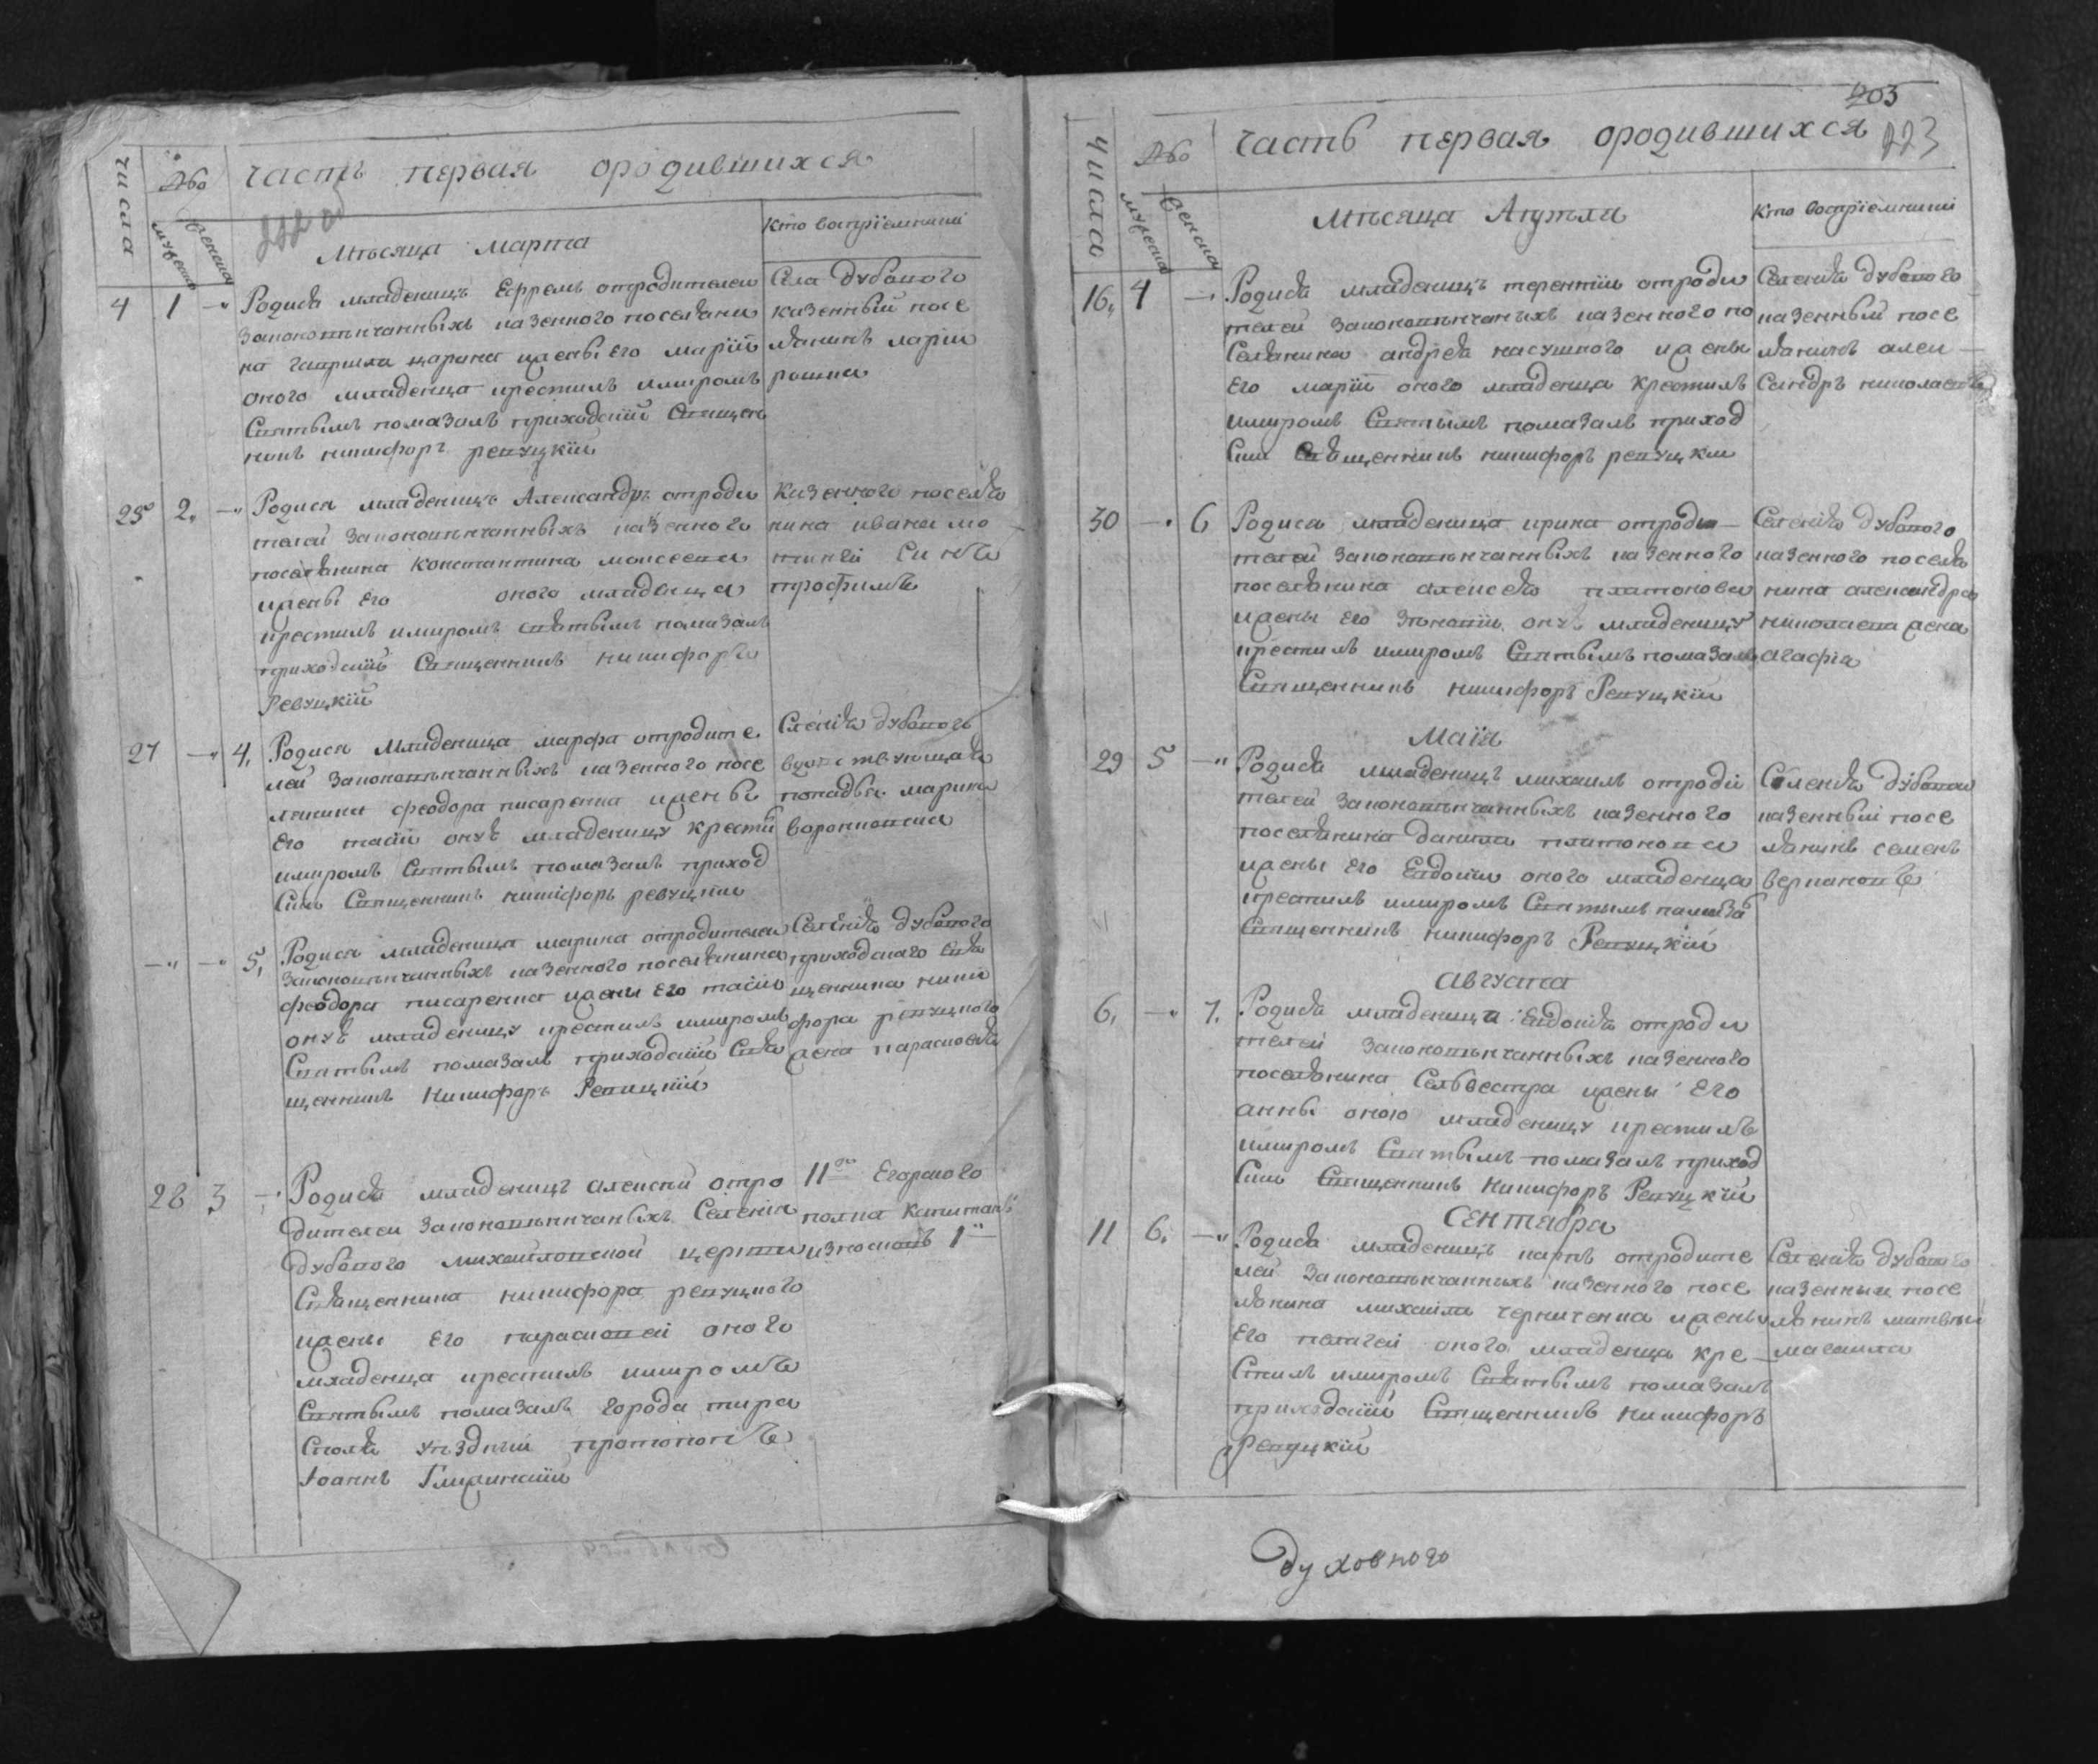 числа
часть первая ородившихся
мужеска
женска
Мѣсяца Марта
Кто восприемники
4 1 —
Родися младенецъ Ефремъ отродителей
законовѣнчанныхъ казенного поселяни
на Гаврила царина жены Его Марїи
оного младенца крестилъ имиромъ
Святымъ помазалъ приходскїй Священ
никъ никифоръ ревуцкїй
Села дубового
казенный посе
лянинъ
25 2 —
Родися младенецъ Александръ отроди
телей законовѣнчанныхъ казенного
поселянина Константина моисеева
жены Его оного младенца
крестилъ имиромъ святымъ помазалъ
приходскїй Священникъ никифоръ
Ревуцкїй
казенного поселя
нина ивана
Синъ
трофимъ
27 — 4
Родися Младеница марфа отродите
лей законовѣнчанныхъ казенного посе
лянина феодора писаренка жены
Его онуѣ младеницу крести
имиромъ Святымъ помазалъ приход
Скїй Священникъ никифоръ ревуцкїй
Селенїя дубового
попадья марина
— — 5
Родися младеница марина отродителей
законовѣнчанныхъ казенного поселянина
феодора писаренка жены Его
онуѣ младеницу крестилъ имиромъ
Святымъ помазалъ приходскїй Свя
щенникъ Никифоръ Ревуцкїй
Селенїя дубового
приходского Свя
щенника ники
фора ревуцкого
жена парасковѣя
28 3 —
Родися младенецъ алексѣй отро
дителей законовѣнчаныхъ Селенїя
дубового михайловской церкви
Священника никифора ревуцкого
жены Его параскевѣи оного
младенца крестилъ имиромъ
Святымъ помазалъ города тира
споля уѣздный протопопъ
Іоаннъ Глижинскїй
11го Егерского
полка Капитанъ
203
223
числа
часть первая ородившихся
мужеска
женска
Мѣсяца Апреля
Кто восприемники
16 4 —
Родися младенецъ терентїй отроди
телей законовѣнчаныхъ казенного по
Селянина андрѣя насушного жены
Его марїи оного младенца крестилъ
имиромъ Святымъ помазалъ приход
Скїй Священникъ никифоръ ревуцкїй
Селенїя дубового
казенный посе
лянинъ алек
Сандръ николаевъ
30 — 6
Родися младеница ирина отроди
телей законовѣнчанныхъ казенного
поселянина алексѣя платонова
жены Его Зѣновїи онуѣ младеницу
крестилъ имиромъ Святымъ помазалъ
Священникъ никифоръ Ревуцкїй
Селенїя дубового
казенного поселя
нина александра
николаева жена
агафїа
Маїа
29 5 —
Родися младенецъ михаилъ отроди
телей законовѣнчанныхъ казенного
поселянина данила платонова
жены Его Евдокїи оного младенца
крестилъ имиромъ Святымъ помаза
Священникъ никифоръ Ревуцкїй
Селенїя дубового
казенный посе
лянинъ семенъ
Августа
6 — 7
Родися младеница Евдокїя отроди
телей законовѣнчанныхъ казенного
поселянина Сельвестра жены Его
анны оною младеницу крестилъ
имиромъ Святымъ помазалъ приход
Скїй Священникъ Никифоръ Ревуцкїй
Сентабра
11 6 —
Родися младенецъ карпъ отродите
лей законовѣнчанныхъ казенного посе
лянина михаила черниченка жены
Его пелагеи оного младенца кре
Стилъ имиромъ Святымъ помазалъ
приходскїй Священникъ Никифоръ
Ревуцкїй
Селенїя дубового
казенный посе
лянинъ матвѣй
Духовного